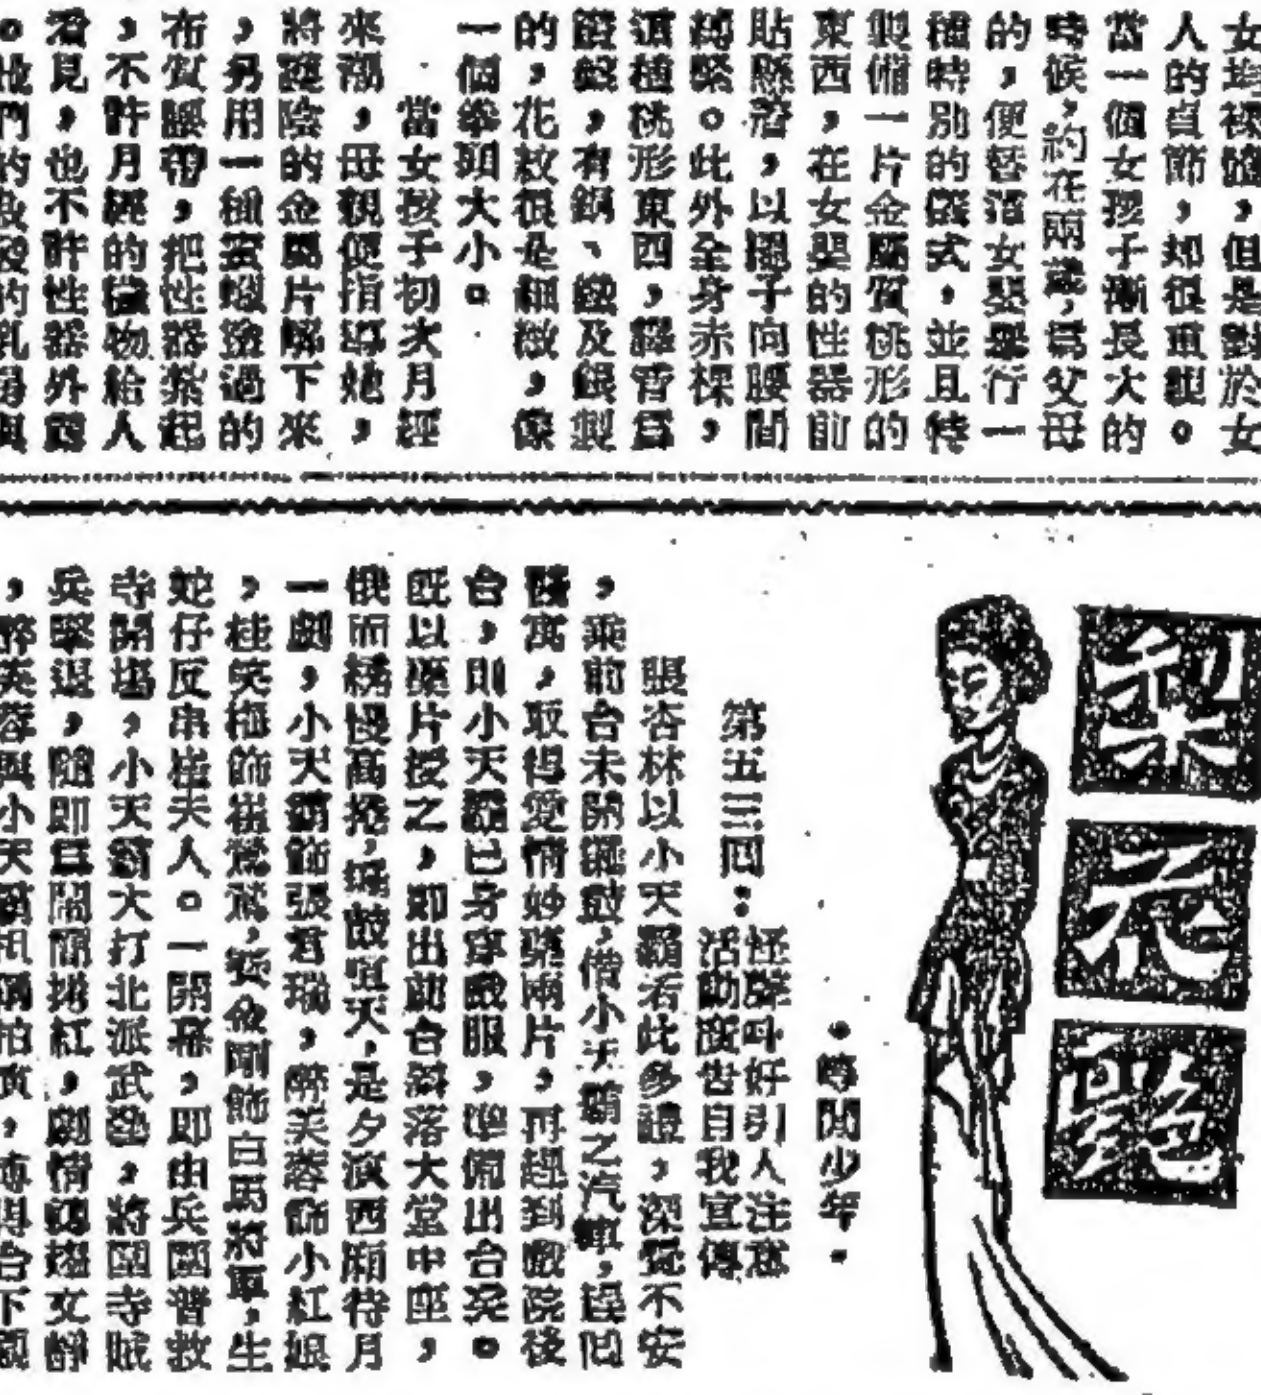 女均裸體,但是對於女
人的貞節,却很重視。
當一個女孩子漸長大的
時候,約在兩歲,爲父母
的,便替這女嬰舉行一
種特別的儀式,並且特
製備一片金屬質桃形的
東西,在女嬰的性器前
貼懸着,以關子向腰間
縛緊。此外全身赤裸,
這種桃形東西,譯皆爲
,有銅、鐵及銀製
的,花紋很是細緻,像
一個拳頭大小。
當女孩子初次月經
來潮,母親便指導她,
將護陰的金屬片解下來
,另用一種蜜蠟塗過的
布質腰帶,把性器紮起
,不許月經的穢物給人
看見,也不許性器外露
。他們的的乳房與
梨花艷
•時閒少年•
第五三回:
怪聲叫好引人注意
活動廣告自我宣傳
張杏林以小天霸若此多禮,深覺不安
,乘前台未開鑼鼓,借小天霸之汽車,返回
醫寓,取得愛情妙藥兩片,再趕到戲院後
台,則小天霸已身穿戲服,準備出台矣。
旣以藥片授之,即出前台落大堂中座,
俄而繡幔高捲,鑼鼓喧天,是夕演西廂待月
一劇,小天霸飾張君瑞,醉芙蓉飾小紅娘
,桂笑梅飾崔鶯鶯,金剛飾白馬將軍,生
蛇仔反串崔夫人。一開幕,即由兵圍普救
寺開塲,小天霸大打北派武藝,將圍寺賊
兵擊退,隨即爲鬧簡拷紅,劇情文靜
,醉芙蓉與小天霸拍演,博得台下觀